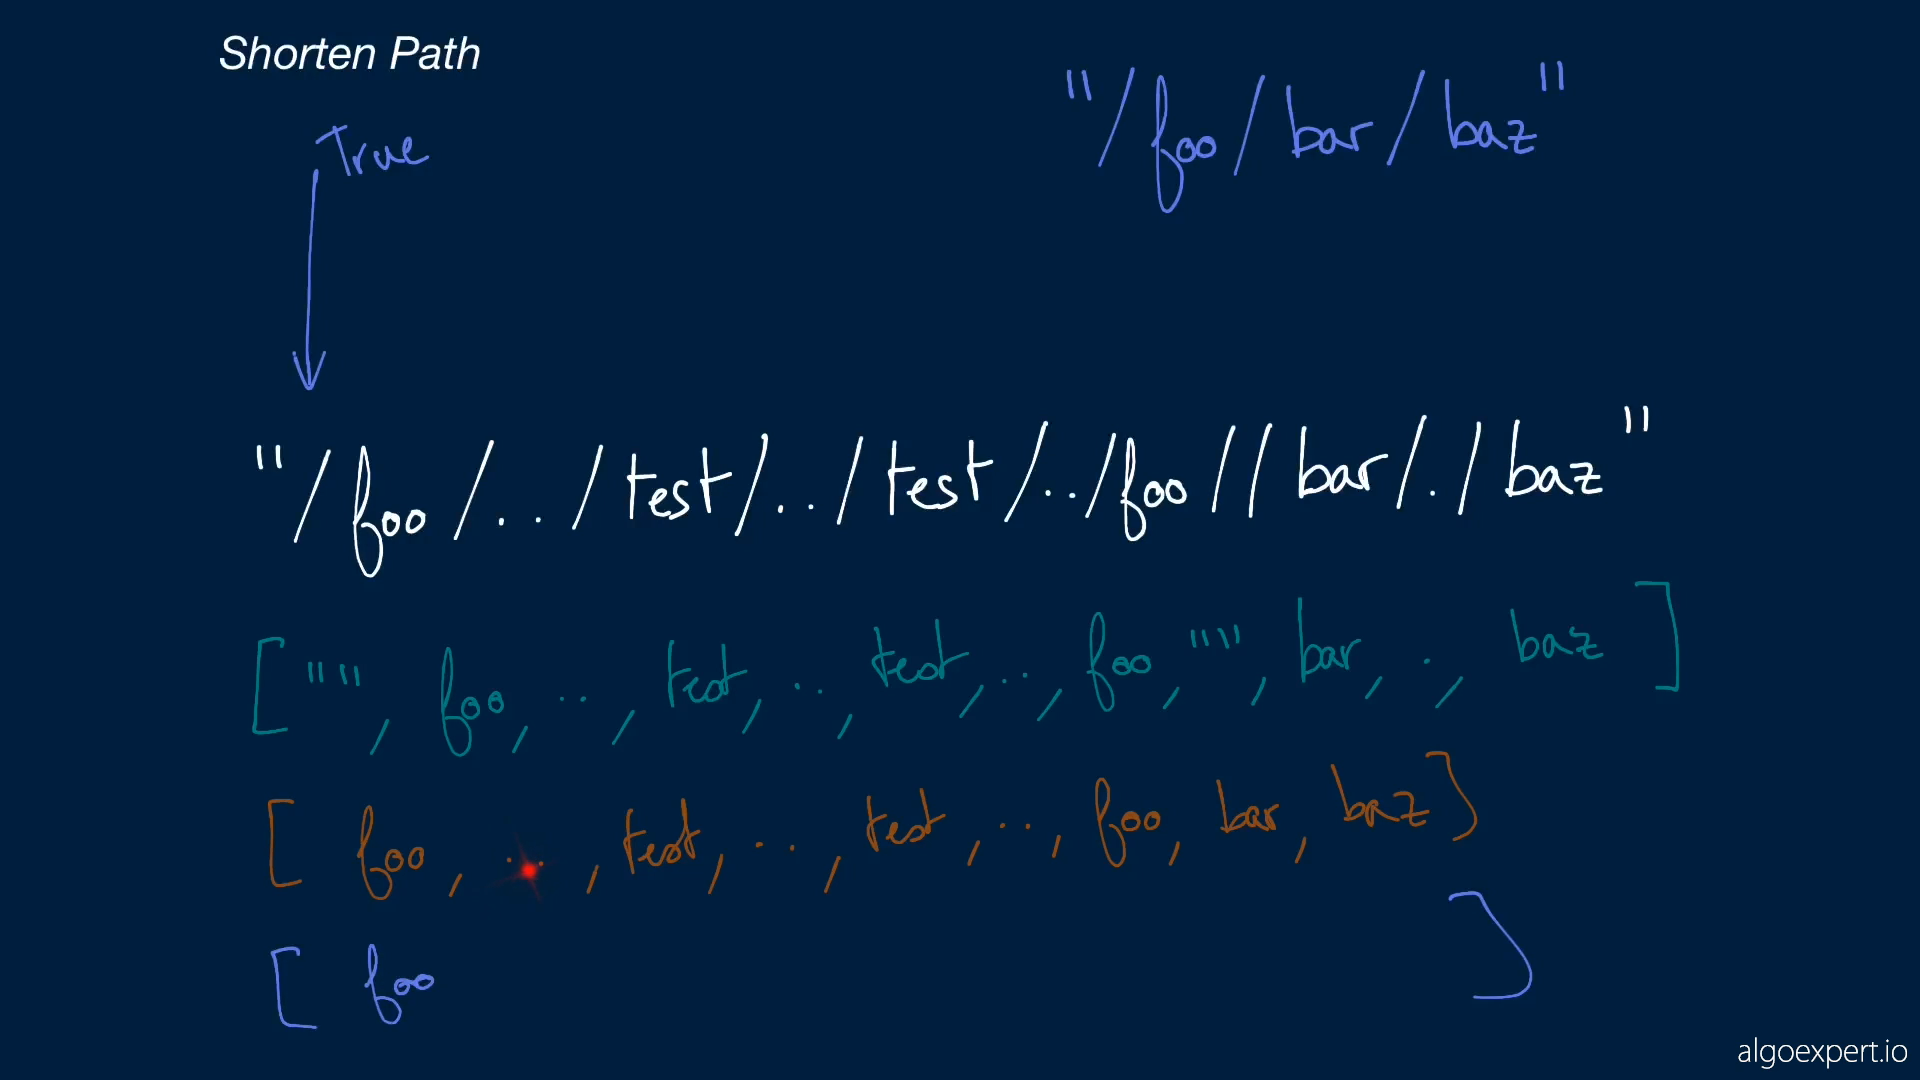 Shorten Path
"/foo/bar/baz"
True
"/foo/../test/../test/../foo//bar/./baz"
["", foo, .., test, .., test, .., foo, "", bar, ., baz]
[foo, .., test, .., test, .., foo, bar, baz]
[foo ]
algoexpert.io